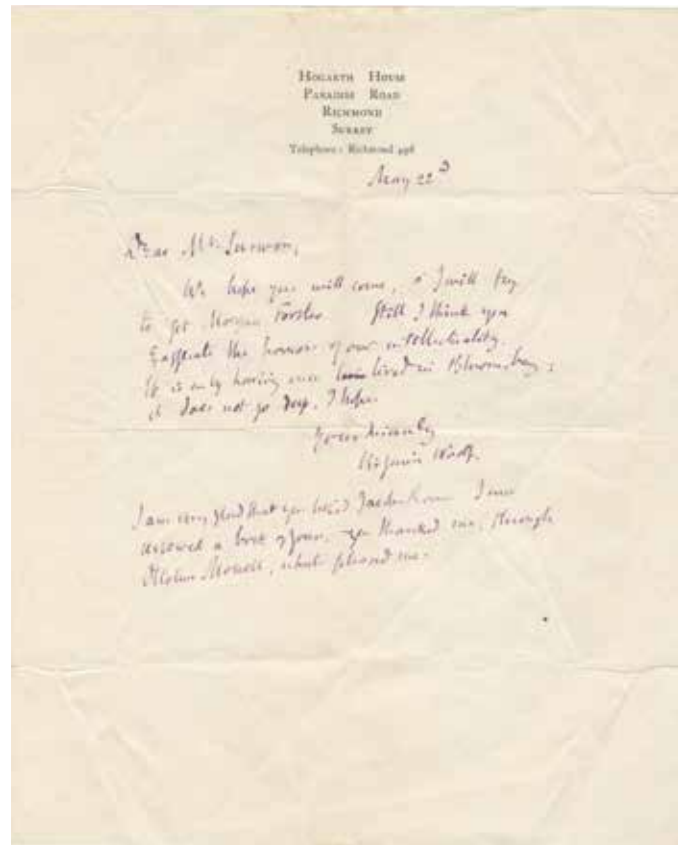 HOGARTH HOUSE
PARADISE ROAD
RICHMOND
SURREY
Telephone: Richmond 496
May 22d
Dear Mr. Sassoon,
We hope you will come, & I will try
to get Morgan Forster. Still I think you
exaggerate the horrors of our intellectuality.
It is only having once lived in Bloomsbury;
it does not go deep, I hope.
Yours sincerely
Virginia Woolf.
I am very glad that you liked Jacob's Room. I once
reviewed a book of yours, you thanked me, through
Ottoline Morrell, which pleased me.